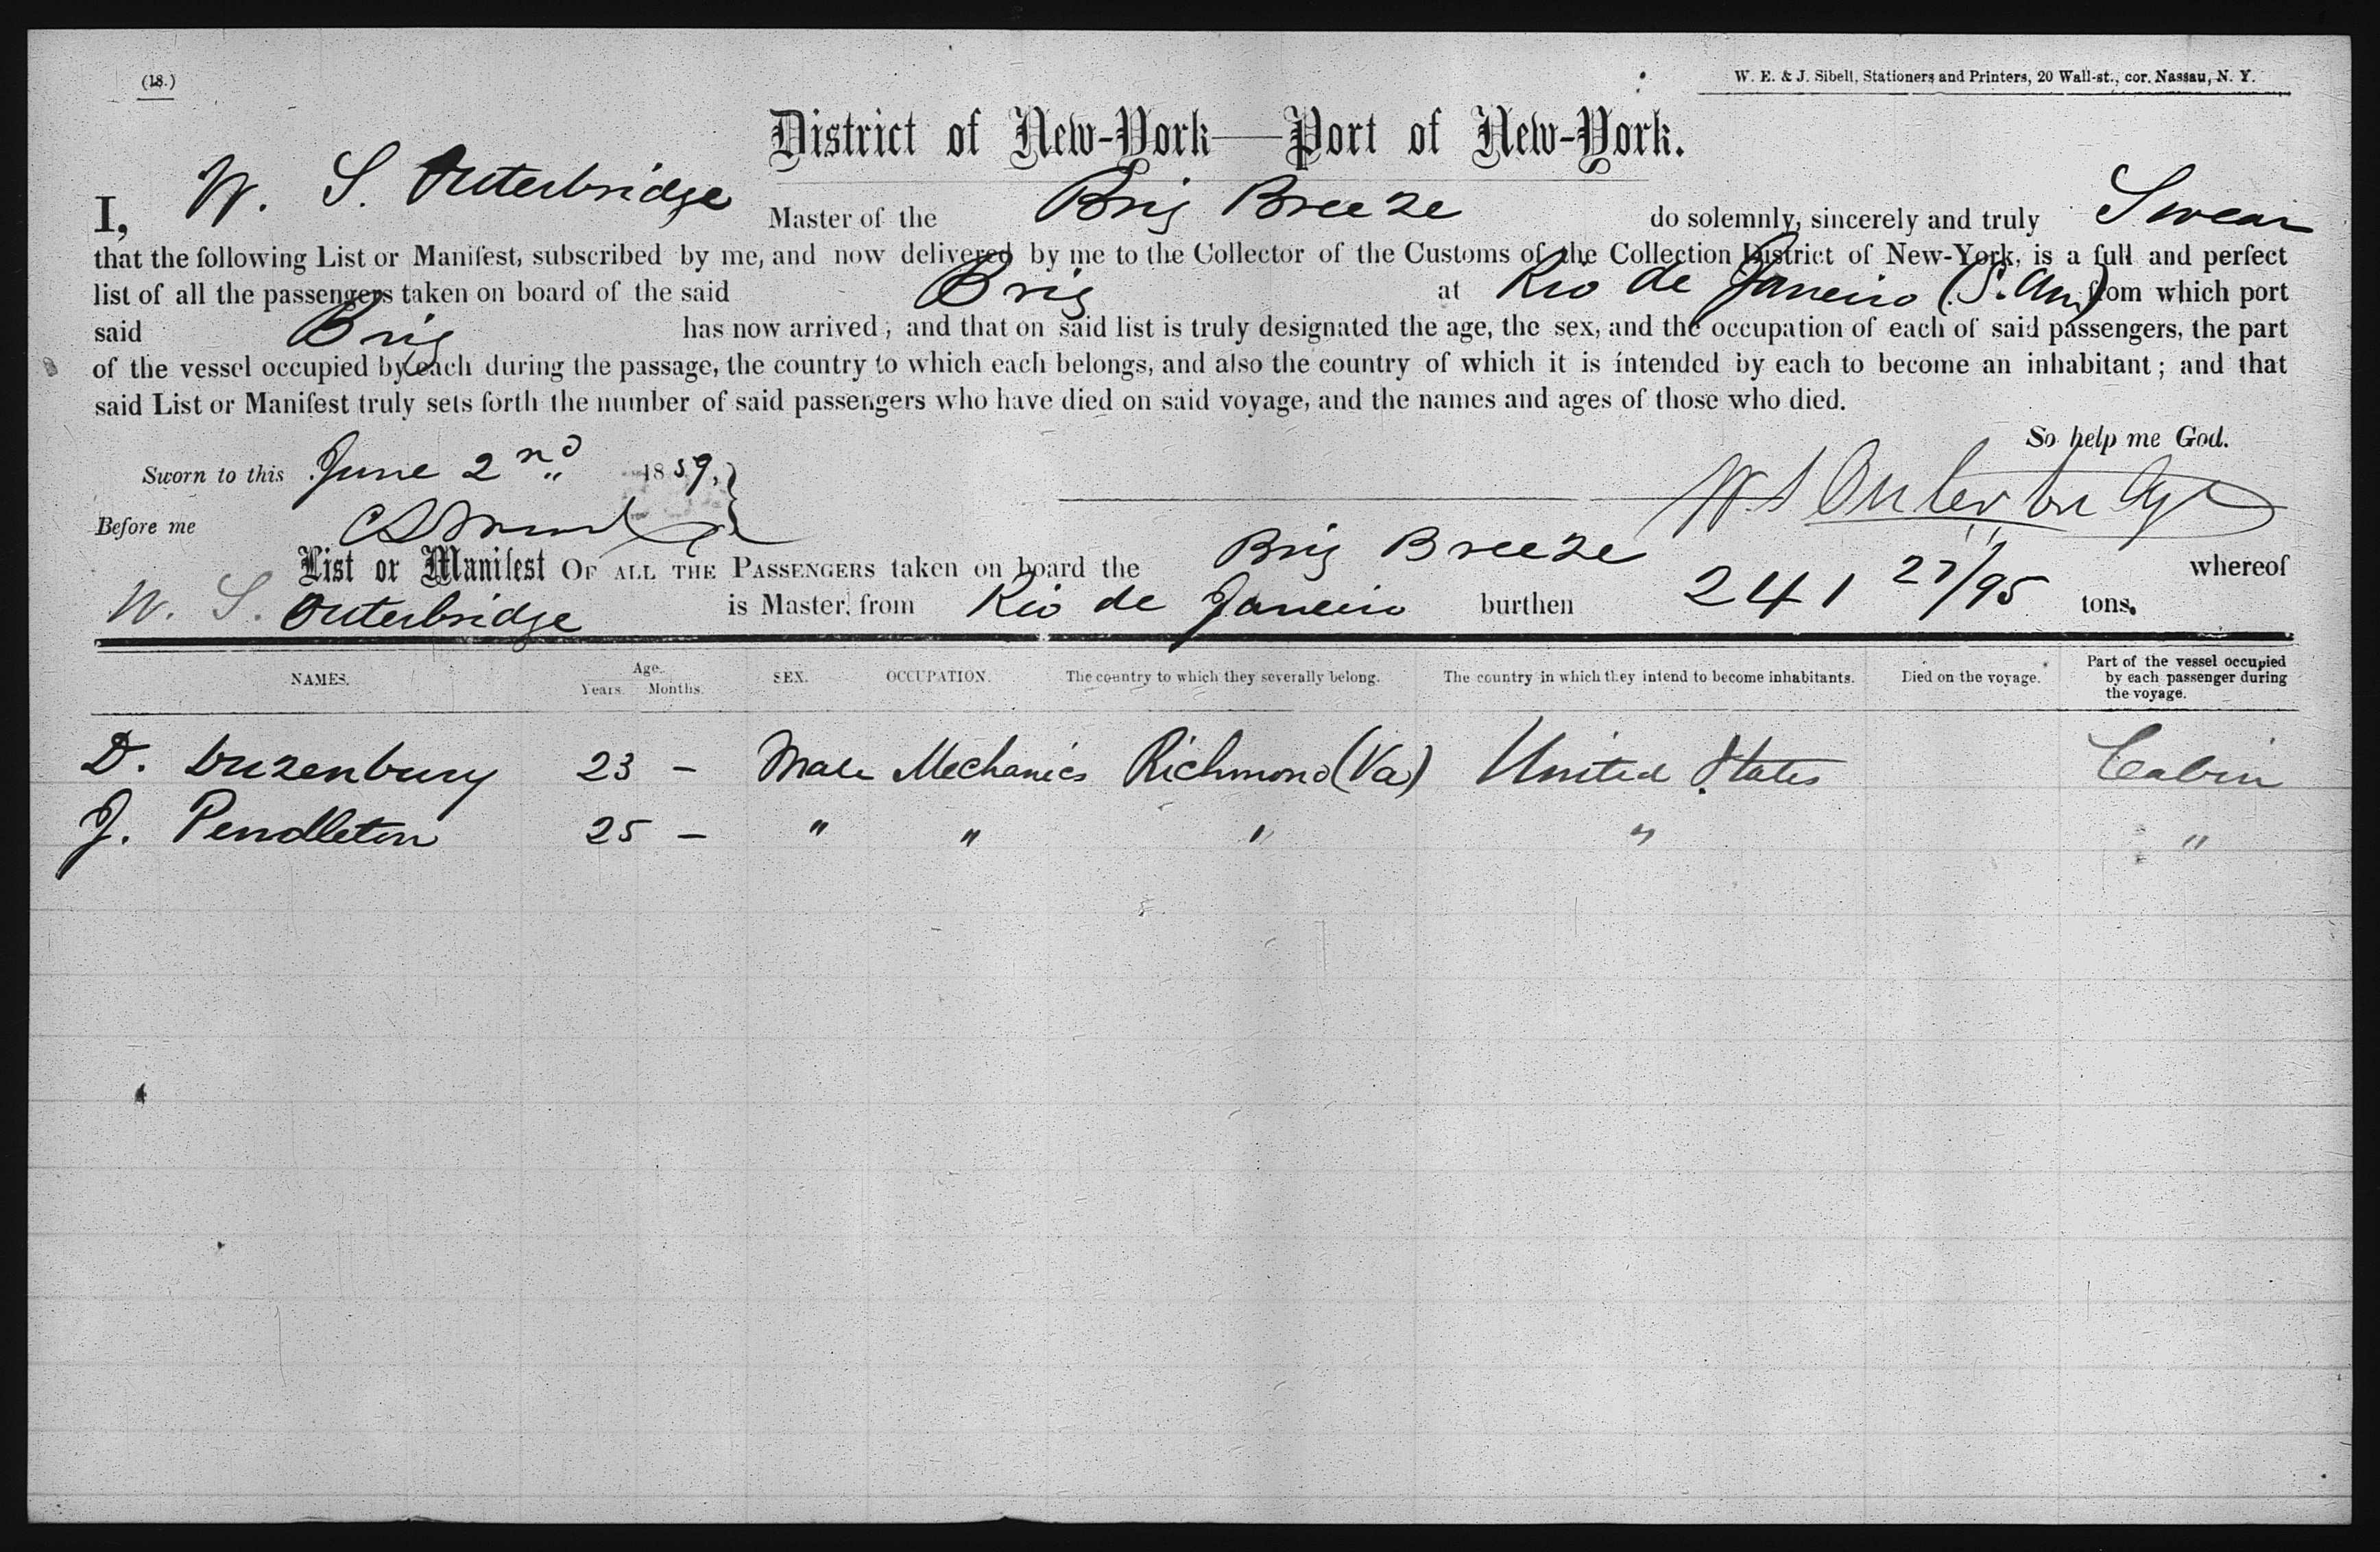 (18.)
W. E. & J. Sibell, Stationers and Printers, 20 Wall-st., cor. Nassau, N. Y.
District of New-York—Port of New-York.
I, W. S. Outerbridge Master of the Brig Breeze do solemnly, sincerely and truly Swear
that the following List or Manifest, subscribed by me, and now delivered by me to the Collector of the Customs of the Collection District of New-York, is a full and perfect
list of all the passengers taken on board of the said Brig at Rio de Janeiro (S. Am) from which port
said Brig has now arrived; and that on said list is truly designated the age, the sex, and the occupation of each of said passengers, the part
of the vessel occupied by each during the passage, the country to which each belongs, and also the country of which it is intended by each to become an inhabitant; and that
said List or Manifest truly sets forth the number of said passengers who have died on said voyage, and the names and ages of those who died.
So help me God.
Sworn to this June 2nd 1859, W S Outerbridge
Before me
List or Manifest OF ALL THE PASSENGERS taken on board the Brig Breeze whereof
W. S. Outerbridge is Master, from Rio de Janeiro burthen 241 27/95 tons.
NAMES. Age. Years. Months. SEX. OCCUPATION. The country to which they severally belong. The country in which they intend to become inhabitants. Died on the voyage. Part of the vessel occupied by each passenger during the voyage.
D. Duzenbury 23 – Male Mechanics Richmond (Va) United States Cabin
J. Pendleton 25 – " " " " "